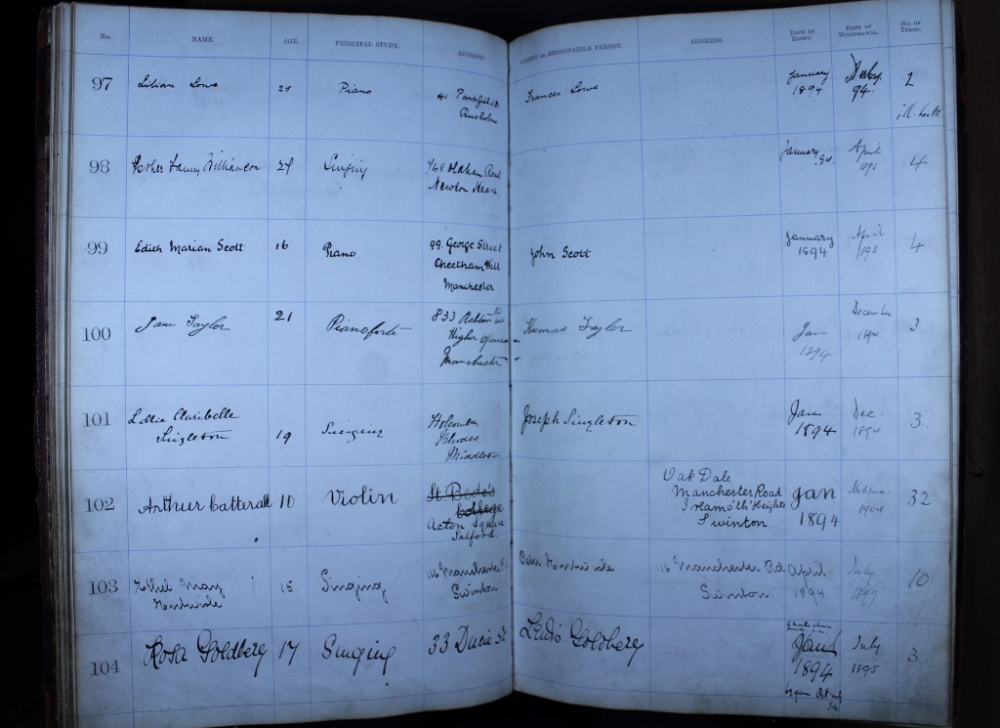 No. NAME. AGE. PRINCIPAL STUDY. ADDRESS. PARENT OR RESPONSIBLE PERSON. ADDRESS DATE OF ENTRY. DATE OF WITHDRAWAL. NO. OF TERMS.
97 Lilian Lowe Piano 41 Frances Lowe January 1894 94. 2
Rusholme
ill-health
98 Esther Fanny Williamson 24 Singing Road January 94 April 1895 4
Newton Heath
99 Edith Marian Scott 16 Piano 99. George Street John Scott January 1894 April 1895 4
Cheetham Hill
Manchester
100 Jane Taylor 21 Pianoforte 833 Ashton Thomas Taylor Jan 1894 December 1894 3.
Higher
Manchester
101 Claribelle
Singleton 19 Singing Joseph Singleton Jan 1894 Dec 1894 3.
Rhodes
Middleton
102 Arthur Catterall 10 Violin St Bede's College Oak Dale Jan 1894 1904 32
Acton Square Manchester Road
Salford. Irlams o'th' Heights
Swinton
103 Ethel May 18 Singing 116 Manchester Rd Peter 116 Manchester Rd April 1894 July 1897 10
Swinton Swinton
104 Rosa Goldberg 17 Singing 33 Ducie St Louis Goldberg Jan 1894 July 1895 3